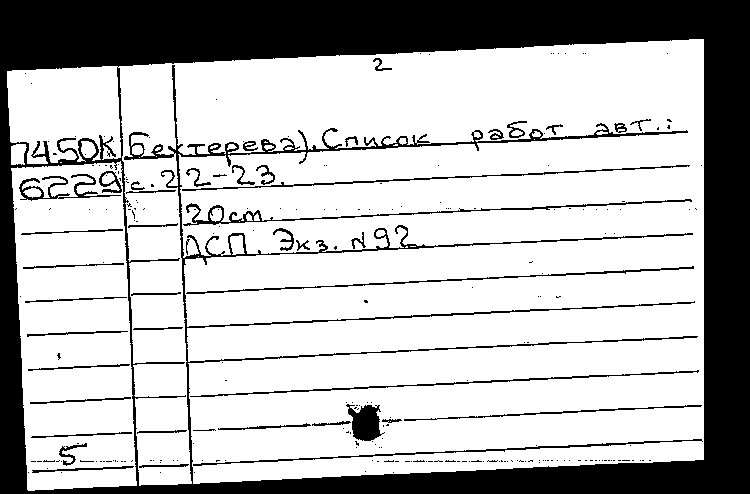 2
7450К Бехтерева). Список работ авт.:
6229 с. 22-23.
20 cm.
ДСП. Экз. N92.
5